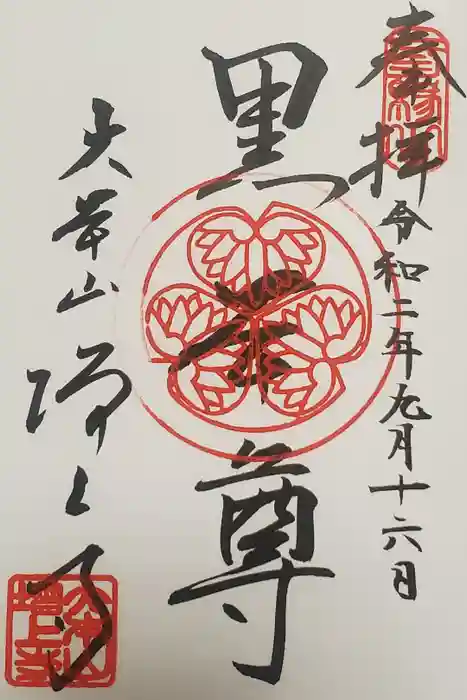 奉拝
令和二年九月十六日
黒本尊
大本山
増上寺